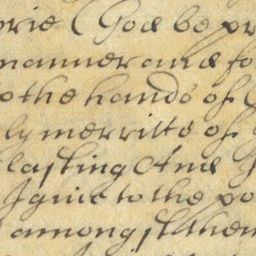 orie (God be pr
manner and fo
to the hands of
ly merritts of
lasting And
I give to the po
amongst them